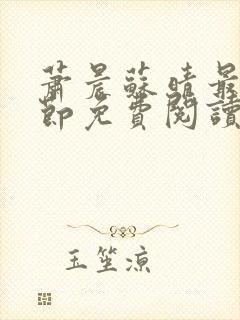 蕭晨蘇晴最
節免費閱讀
玉笙涼